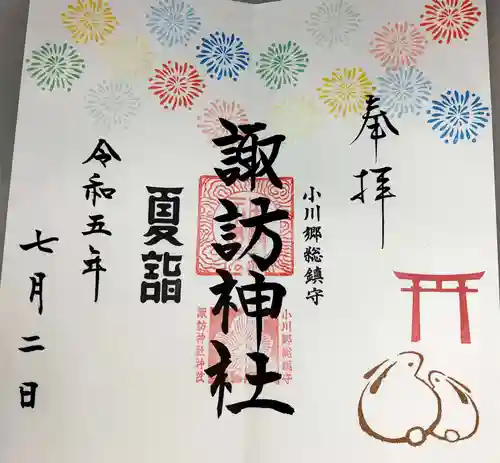 奉拝
小川郷総鎮守
諏訪神社
小川郷総鎮守
諏訪神社神印
夏詣
令和五年
七月二日